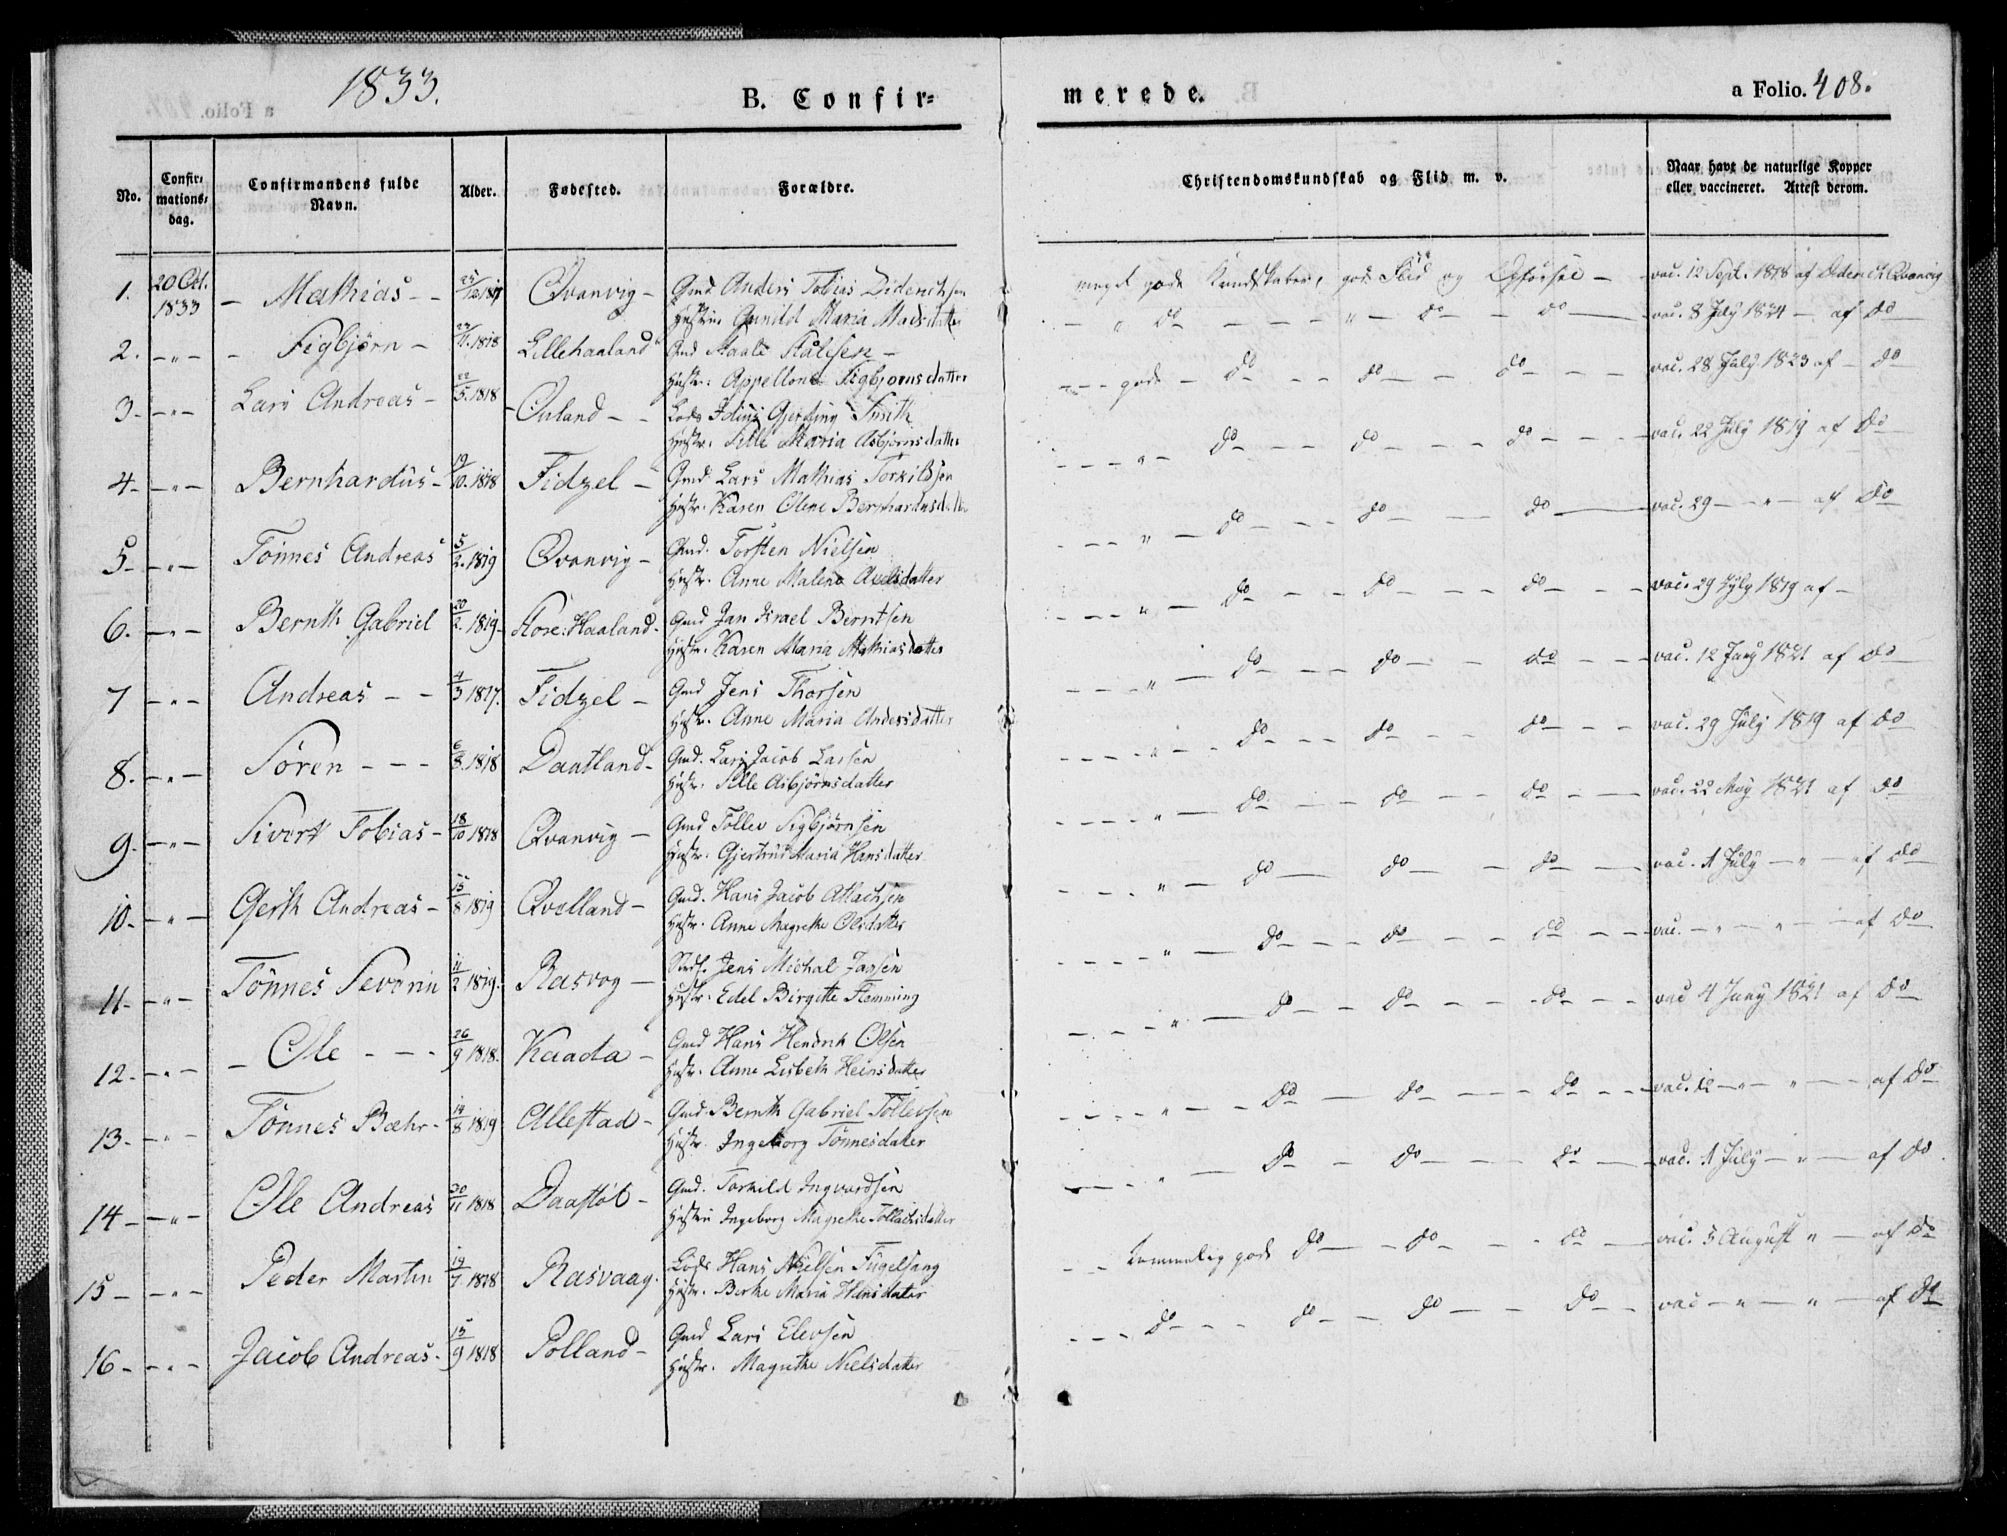 1833.
B. Confir=
merede.
a Folio. 408.
No.
Confir-
mations-
dag.
Confirmandens fulde
Navn.
Alder.
Fødested.
Forældre.
Christendomskundskab og Flid m. v.
Naar havt de naturlige Kopper
eller vaccineret. Attest derom.
1. 20 Oct. 1833 – Mathias – – 25/12 1817 Qvanvig – Gmd Anders Tobias Diderichsen
Hustrue Gunild Maria Madsdatter
meget gode Kundskaber, god Flid og Opførsel – vac. 12 Sept. 1818 af Diderich Qvanvig
2. – " – – Sigbjørn – 23/11 1818 Lillehaaland Gmd Staale Stålesen –
Hustr: Appellone Sigbjørnsdatter
– " do – – – " – do – – do – vac. 8 July 1824 – af do
3 – " – Lars Andreas – 22/5 1818 – Onland – – Lods Gjerding Smith
Hustr: Sille Maria Asbjørnsdatter
– – – gode – do – – do – – do – – vac. 28 July 1823 af – do
4 – " – Bernhardus – 19/10 1818 Fidzel – Gmd Lars Mathias Torkildsen
Hustr. Karen Oline Bernhardusdatter
– – – " – do – – do – – – do – – – vac. 22 July 1819 af do
5 – " – Tönnes Andreas 5/2 1819 Qvanvig – Gmd. Torsten Nielsen
Hustr. Anne Malene Axelsdatter
– – – " – do – – – do – – – do – vac. 29 – " – af do
6. – " – Bernth Gabriel 20/2 1819 – Store: Haaland – Gmd Jan Israel Berntsen
Hustr. Karen Maria Mathiasdatter
– – – " – do – – – do – – – do – – – vac. 29 July 1819 af –
7 – " – Andreas – – 4/3 1817. Fidzel – Gmd Jens Thorsen
Hustr. Anne Maria Andersdatter
– – – " – do – – – do – – – do – – – vac. 12 Juny 1821 af do
8. – " – Sören – – – 6/3 1818 Daatland – Gmd. Lars Jacob Larsen
Hustr. Sille Asbjørnsdatter
– – – " – – do – – – do – – – do – – – vac. 29 July 1819 af do
9. – " – Sivert Tobias – 18/10 1818 Qvanvig – Gmd Tollev Sigbjørnsen
Hustr. Gjertrud Maria Hansdatter
– – – – " – do – – – do – – – do – – – vac. 22 May 1821 af do
10 – " – Gerth Andreas – 15/8 1819 Qvelland – Gmd. Hans Jacob Atlachsen
Hustr. Anne Magrethe Olsdatter
– – – " – do – – do – – do – – vac. 1 July – " – af do
11 – " – Tönnes Severin 11/2 1819. Rasvog – Jens Michal Jansen
Hustr. Edel Birgitte Flemming
– – – – " – do – – – do – – – do – – – vac. – " – " – – af do
12 – " – – Ole – – – 26/9 1818. Kaada – Gmd Hans Hendrik Olsen
Hustr. Anne Lisbeth Heinsdatter
– – – " – do – – do – – – do – – – vac 4 Juny 1821 af do
13 – " – Tönnes Bæhr – 14/8 1819 Allestad – Gmd. Bernth Gabriel Tollevsen
Hustr. Ingeborg Tönnesdatter
– – – – " – – do – – do – – – – do – – – vac. 12 – " – " – – af do
14 – " – Ole Andreas 30/11 1818 Daastöl – Gmd. Torkild Ingvardsen
Hustrue Ingeborg Magrethe Tollachsdatter
– – – – " – do – – do – – – – do – – vac. 1 July – " – af do.
15 – " – Peder Martin 19/7 1818 Rasvaag. Lods Hans Nielsen Fugelsang
Hustr. Berthe Maria Heinsdatter
– – temmelig gode do – – do – – – do – vac. 3 August " – af do
16 – " – Jacob Andreas – 15/9 1818 Polland – Gmd Lars Elevsen
Hustr. Magrethe Nielsdatter
– – – do – – – do – – do – – – do – – vac – " – " – af do